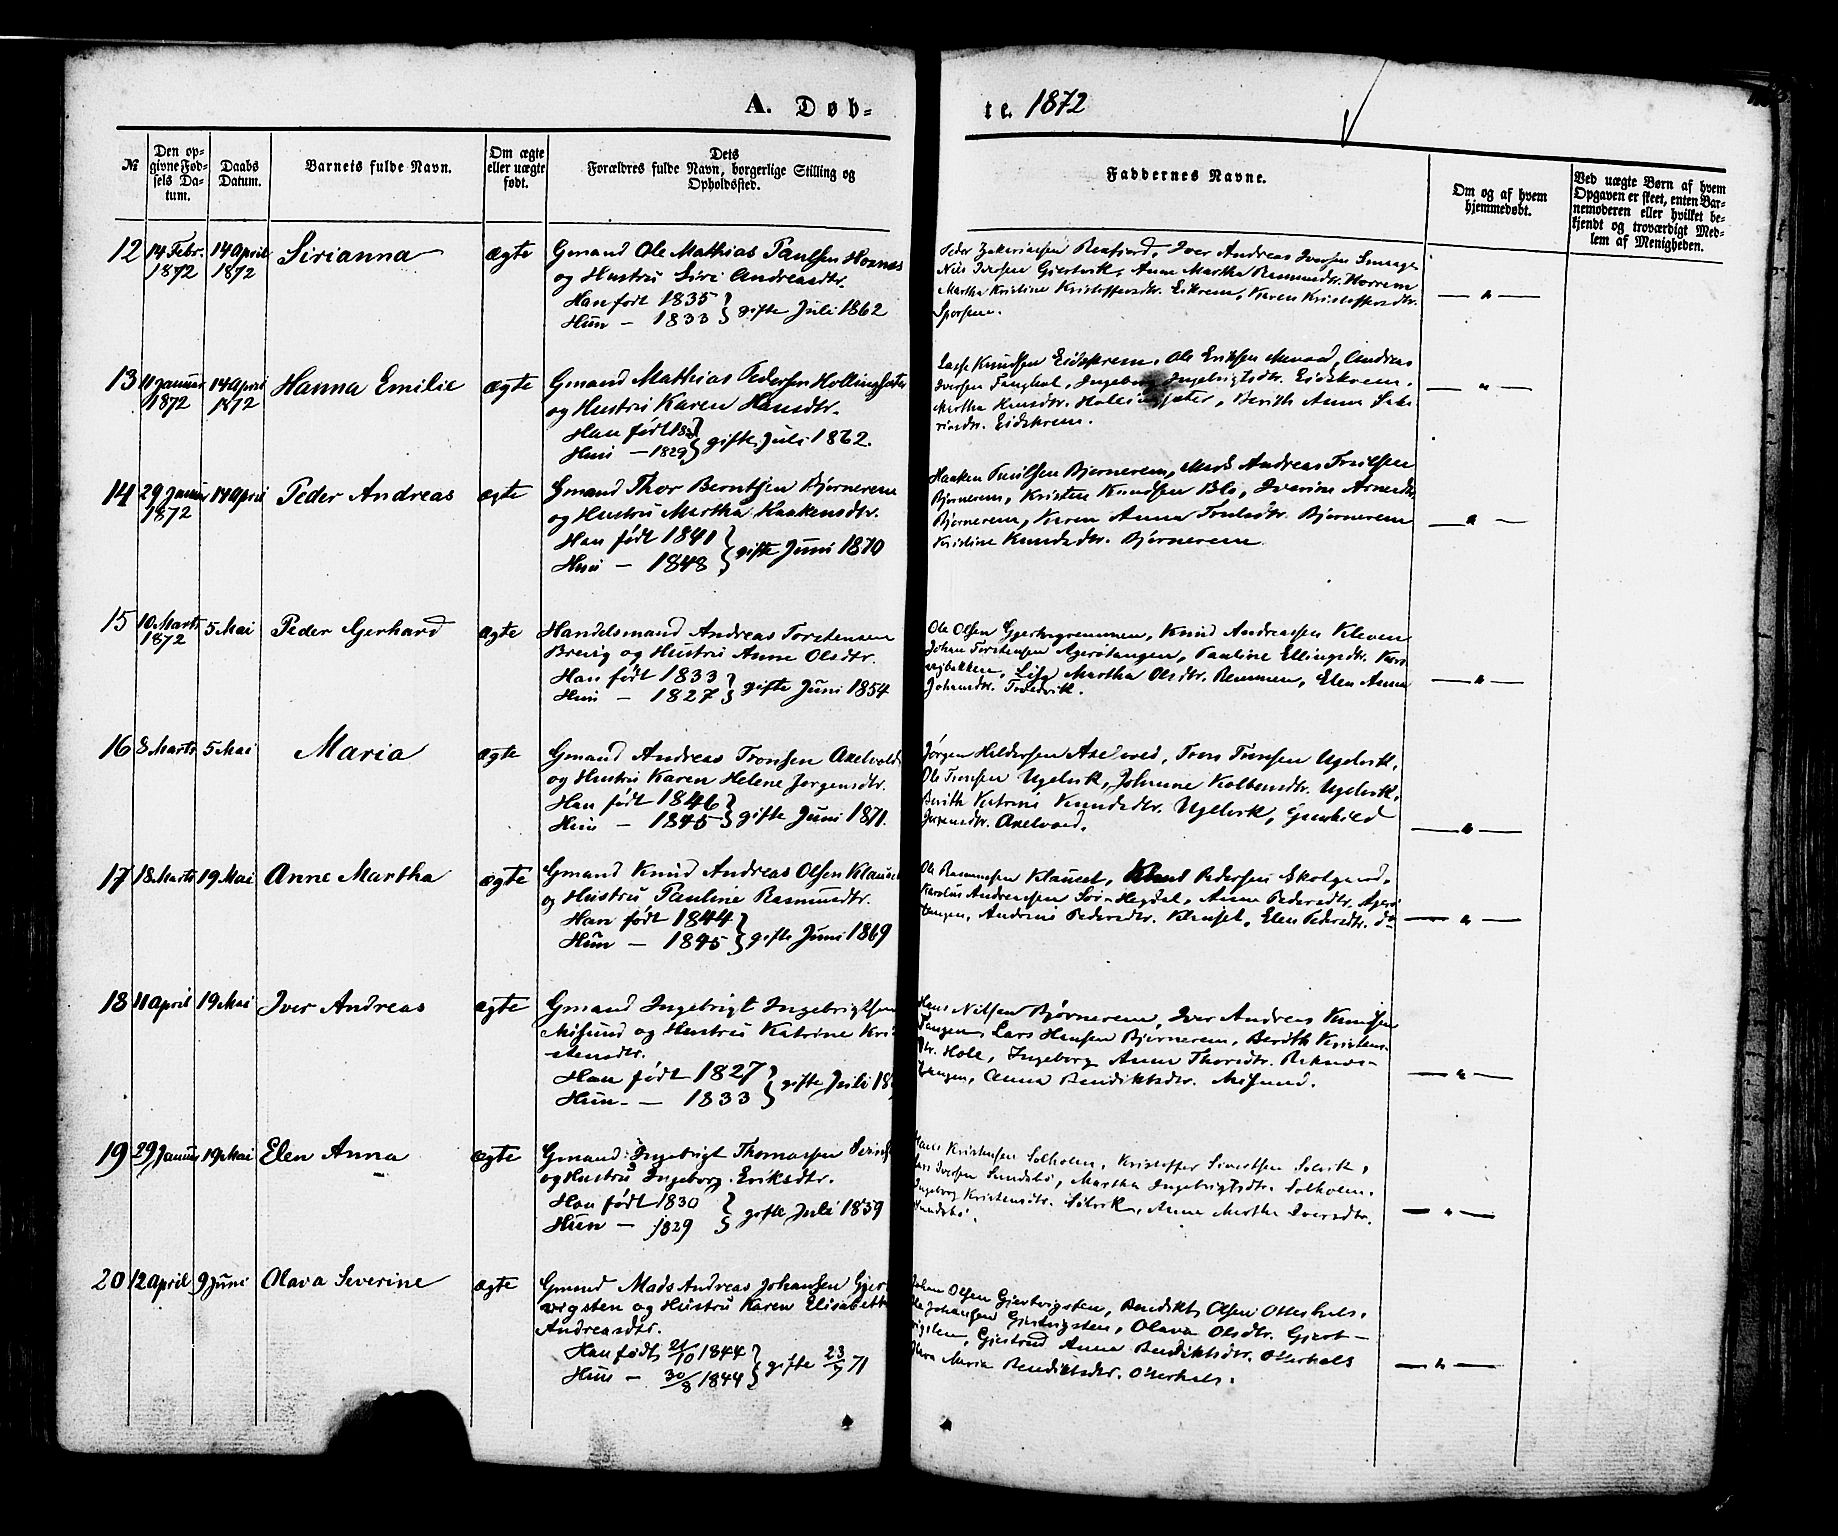 A. Døb-
te. 1872
№
Den op-
givne Fød-
sels Da-
tum.
Daabs
Datum.
Barnets fulde Navn.
Om ægte
eller uægte
født.
Dets
Forældres fulde Navn, borgerlige Stilling og
Opholdssted.
Faddernes Navne.
Om og af hvem
hjemmedøbt.
Ved uægte Børn af hvem
Opgaven er skeet, enten Bar-
nemoderen eller hvilket be-
kjendt og troværdigt Med-
lem af Menigheden.
12 14 Febr. 1872 14 April 1872 Sirianna ægte
Gmand Ole Mathias Paulsen Hornes
og Hustru Siri Andreasdtr.
Han født 1835 } gifte Juli 1862
Hun — 1833
Peder Andreas Iversen
Nils Iversen Gjertvik, Anne Martha Rasmusdtr. Horrem
Martha Kristine Kristoffersdtr. Eikrem, Karen Kristoffersdtr.
— " —
13 11 Januar 1872 14 April 1872 Hanna Emilie ægte
Gmand Mathias Pedersen Hollingsæter
og Hustru Karen Hansdtr.
Han født } gifte Juli 1862.
Hun — 1829
Lasse Knudsen Eidskrem, Ole Eriksen, Andreas
Iversen, Ingeborg Ingebrigtsdtr. Eidskrem,
Martha Hansdtr. Hollingsæter, Berith Anna
Eidskrem.
— " —
14 29 Januar 1872 14 April Peder Andreas ægte
Gmand Thor Berntsen Bjørnerem
og Hustru Martha Haakensdtr.
Han født 1841 } gifte Juni 1870
Hun — 1848
Haaken Truilsen Bjørnerem, Mads Andreas Truilsen
Bjørnerem, Kristen Knudsen Blø, Iverine Arnesdtr.
Bjørnerem, Karen Anna Truelsdtr. Bjørnerem
Kristine Knudsdtr. Bjørnerem
— " —
15 10 Marts 1872 5 Mai Peder Gerhard ægte
Handelsmand Andreas Torstensen
Brevig og Hustru Anne Olsdtr.
Han født 1833 } gifte Juni 1854
Hun — 1827
Ole Olsen, Knud Andreassen Kleven
Johan Torstensen Agerøtangen, Pauline Ellingsdtr.
Martha Olsdtr. Remmen, Elen Anna
Johansdtr.
— " —
16 8 Marts 5 Mai Maria ægte
Gmand Andreas Tronsen Axelvold
og Hustru Karen Helene Jørgensdtr.
Han født 1846 } gifte Juni 1871.
Hun — 1845
Jørgen Axelvold, Trons Tronsen Ugelvik,
Ole Tronsen Ugelvik, Johanne Kolbensdtr. Ugelvik,
Berith Katrine Knudsdtr. Ugelvik, Gunhild
Axelvold.
— " —
17 18 Marts 19 Mai Anne Martha ægte
Gmand Knud Andreas Olsen Klauset
og Hustru Pauline Rasmusdtr.
Han født 1844 } gifte Juni 1869
Hun — 1845
Ole Rasmussen Klauset, Knud Pedersen Skotgaard,
Karolus Andreassen Sør-Hegdal, Anne Pedersdtr. Agerø
tangen, Andrine Pedersdtr. Klauset, Elen Pedersdtr. do
— " —
18 11 April 19 Mai Iver Andreas ægte
Gmand Ingebrigt Ingebrigtsen
Misund og Hustru Katrine Kri-
stensdtr.
Han født 1827 } gifte Juli
Hun — 1833
Hans Nilsen Bjørnerem, Iver Andreas Knudsen
Tangen, Lars Hansen Bjørnerem, Berith Kristens-
dtr. Hole, Ingeborg Anna Thorsdtr. Raknes-
tangen, Anna Bendiktsdtr. Misund.
— " —
19 29 Januar 19 Mai Elen Anna ægte
Gmand Ingebrigt Thomassen
og Hustru Ingeborg Eriksdtr.
Han født 1830 } gifte Juli 1859
Hun — 1829
Kristensen Solholm, Kristoffer Sivertsen Solvik,
Iversen Sundsbø, Martha Ingebrigtsdtr. Solholm,
Ingeborg Kristensdtr. Solvik, Anne Martha Iversdtr.
Sundsbø.
— " —
20 12 April 9 Juni Olava Severine ægte
Gmand Mads Andreas Johansen Gjert-
vigsten og Hustru Karen Elisabeth
Andreasdtr.
Han født 21/10 1844 } gifte 23/7 71
Hun — 30/8 1844
Johan Olsen Gjertvigsten, Bendikt Olsen Otterhals,
Ole Johansen Gjertvigsten, Olava Olsdtr. Gjert-
vigsten, Gjertrud Anna Bendiktsdtr. Otterhals
Maria Bendiktsdtr. Otterhals.
— " —